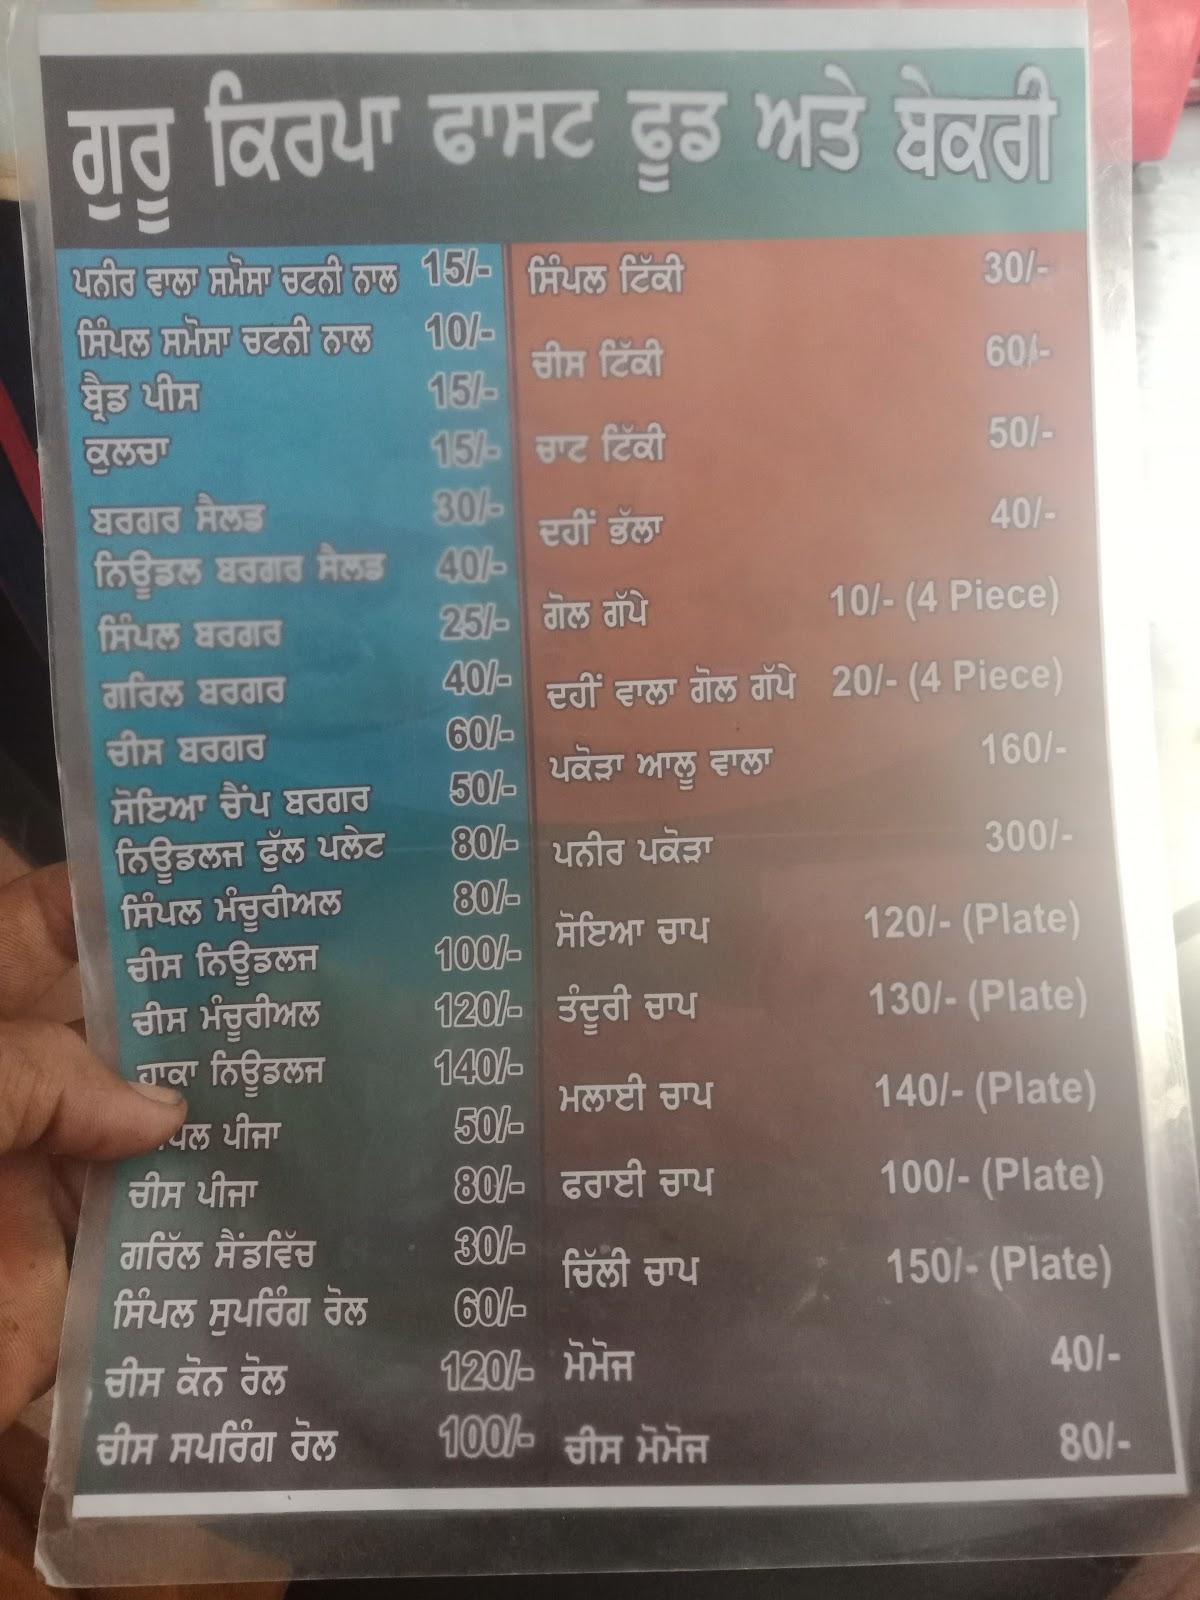 ਗੁਰੂ ਕਿਰਪਾ ਫਾਸਟ ਫੂਡ ਅਤੇ ਬੇਕਰੀ
ਪਨੀਰ ਵਾਲਾ ਸਮੋਸਾ ਚਟਨੀ ਨਾਲ 15/-
ਸਿੰਪਲ ਸਮੋਸਾ ਚਟਨੀ ਨਾਲ 10/-
ਬ੍ਰੈਡ ਪੀਸ 15/-
ਕੁਲਚਾ 15/-
ਬਰਗਰ ਸੈਲਡ 30/-
ਨਿਊਡਲ ਬਰਗਰ ਸੈਲਡ 40/-
ਸਿੰਪਲ ਬਰਗਰ 25/-
ਗਰਿਲ ਬਰਗਰ 40/-
ਚੀਸ ਬਰਗਰ 60/-
ਸੋਇਆ ਚੈਂਪ ਬਰਗਰ 50/-
ਨਿਊਡਲਜ ਫੁੱਲ ਪਲੇਟ 80/-
ਸਿੰਪਲ ਮੰਚੂਰੀਅਲ 80/-
ਚੀਸ ਨਿਊਡਲਜ 100/-
ਚੀਸ ਮੰਚੂਰੀਅਲ 120/-
ਹਾਕਾ ਨਿਊਡਲਜ 140/-
ਪੀਜਾ 50/-
ਚੀਸ ਪੀਜਾ 80/-
ਗਰਿੱਲ ਸੈਂਡਵਿੱਚ 30/-
ਸਿੰਪਲ ਸੁਪਰਿੰਗ ਰੋਲ 60/-
ਚੀਸ ਕੋਨ ਰੋਲ 120/-
ਚੀਸ ਸਪਰਿੰਗ ਰੋਲ 100/-
ਸਿੰਪਲ ਟਿੱਕੀ 30/-
ਚੀਸ ਟਿੱਕੀ 60/-
ਚਾਟ ਟਿੱਕੀ 50/-
ਦਹੀਂ ਭੱਲਾ 40/-
ਗੋਲ ਗੱਪੇ 10/- (4 Piece)
ਦਹੀਂ ਵਾਲਾ ਗੋਲ ਗੱਪੇ 20/- (4 Piece)
ਪਕੋੜਾ ਆਲੂ ਵਾਲਾ 160/-
ਪਨੀਰ ਪਕੋੜਾ 300/-
ਸੋਇਆ ਚਾਪ 120/- (Plate)
ਤੰਦੂਰੀ ਚਾਪ 130/- (Plate)
ਮਲਾਈ ਚਾਪ 140/- (Plate)
ਫਰਾਈ ਚਾਪ 100/- (Plate)
ਚਿੱਲੀ ਚਾਪ 150/- (Plate)
ਮੋਮੋਜ 40/-
ਚੀਸ ਮੋਮੋਜ 80/-